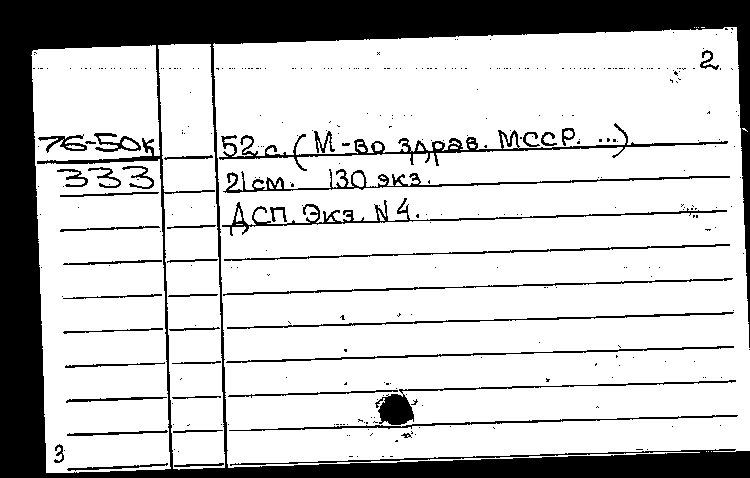 2
76-50к
333
52 с. (М-во здрав. МССР. ...).
21 см. 130 экз.
ДСП. Экз. N 4.
3